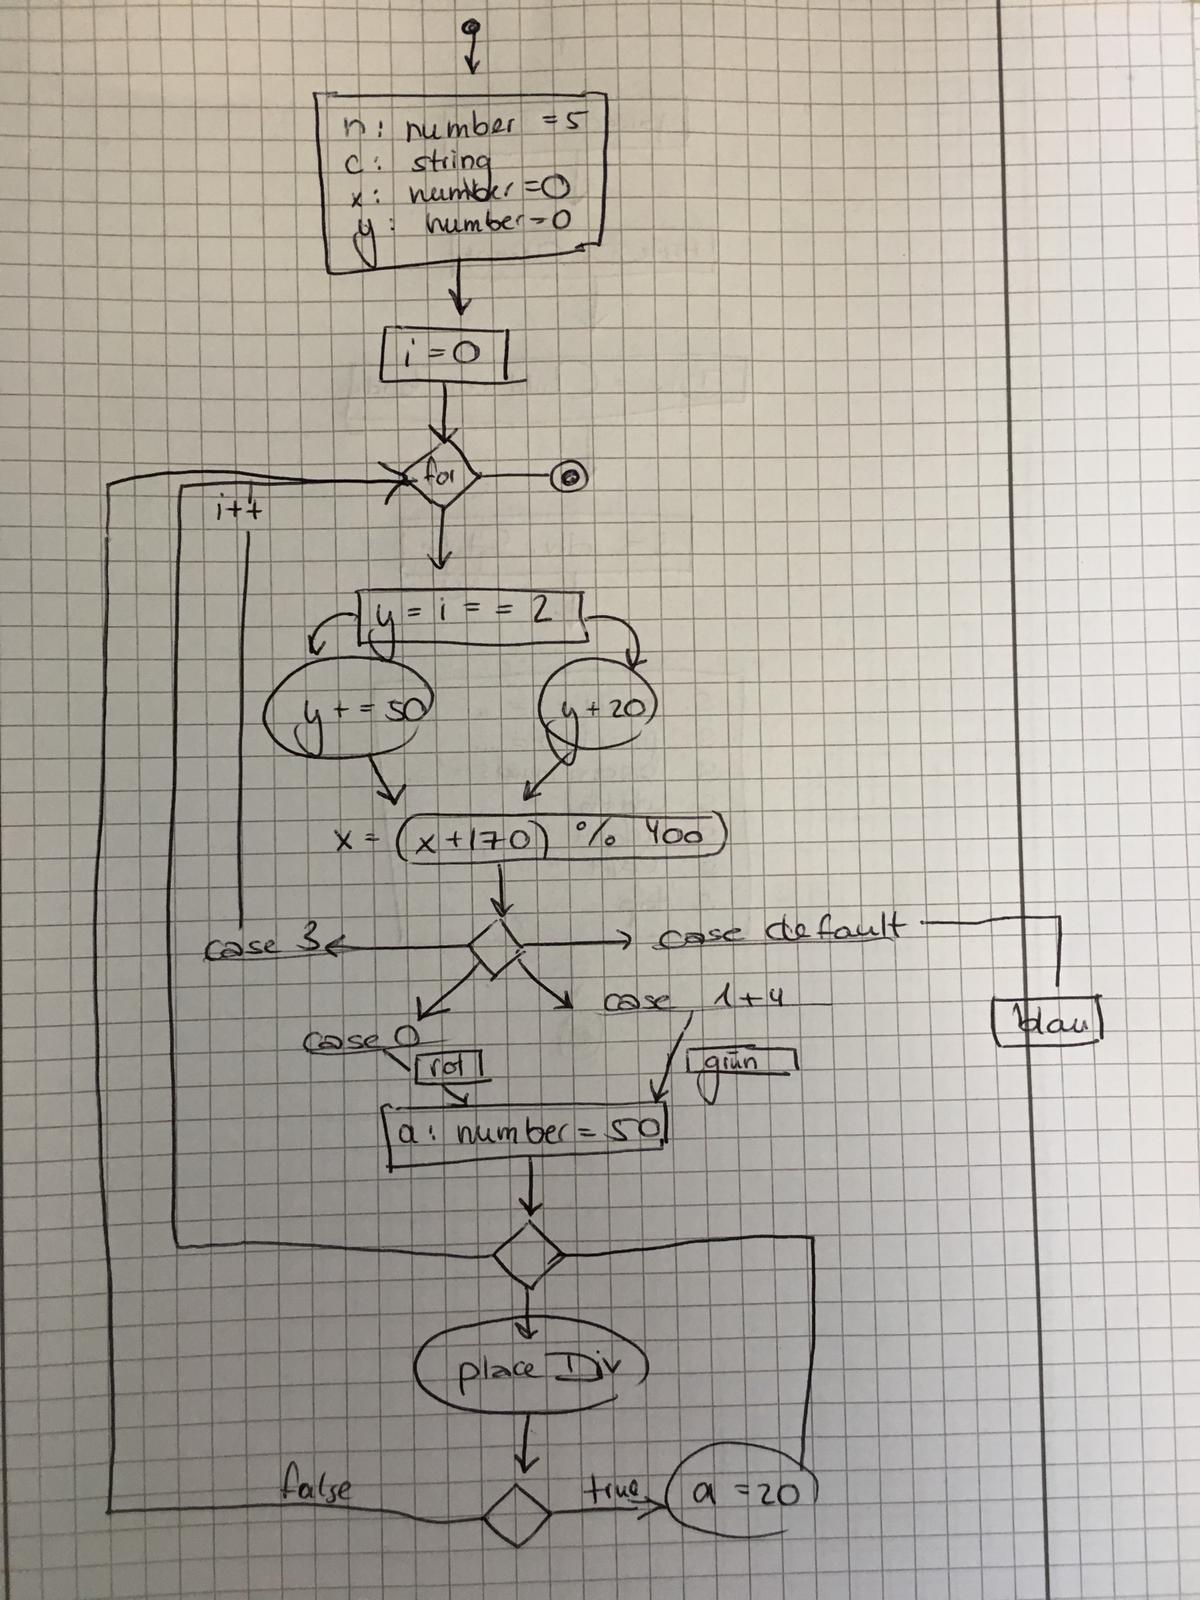 n: number = 5
c: string
x: number = 0
y: number = 0
i = 0
for
i++
y = i = = 2
y + = 50
y + 20
x = (x + 170) % 400
case 3
case default
case 1+4
blau
case 0
rot
grün
a: number = 50
place Div
false
true
a = 20